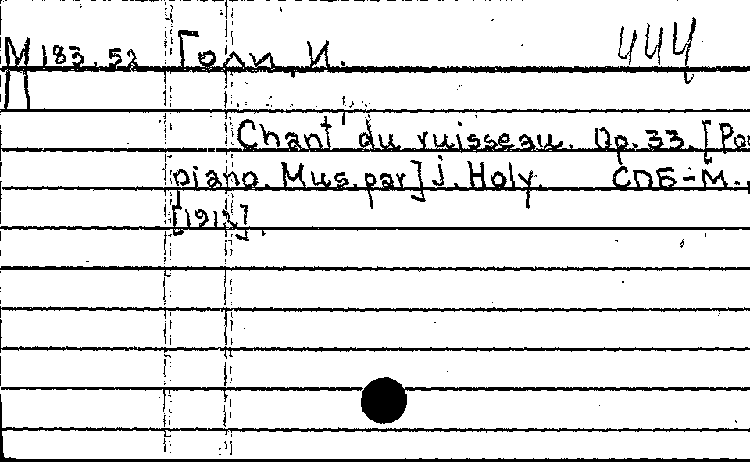 М 183.52 Голи, И. 444
П
Chant du ruisseau. Op. 33. [Po
piano. Mus. par] J. Holy. СПБ-М.,
[1912].